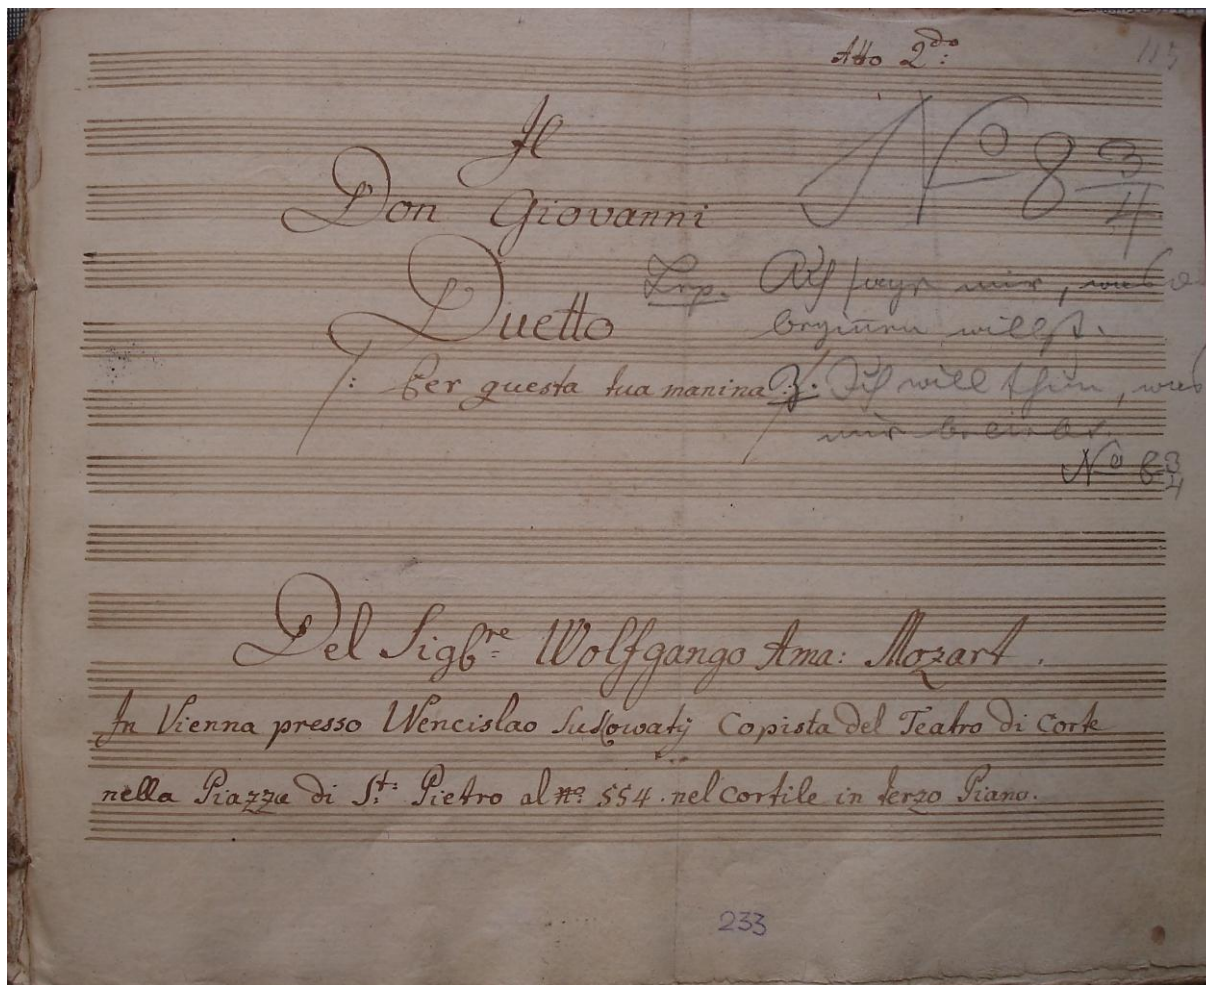 Atto 2do:
115
Il
Don Giovanni
No 8 3/4
Duetto
Lep. Ach sage mir, was
beginnen willst.
/: Per questa tua manina :/
Z. Ich will thun, was
mir beliebt.
No 8 3/4
Del Sigre Wolfgango Ama: Mozart.
In Vienna presso Wencislao Sukowatÿ Copista del Teatro di Corte
nella Piazza di St: Pietro al no: 554. nel cortile in terzo Piano.
233